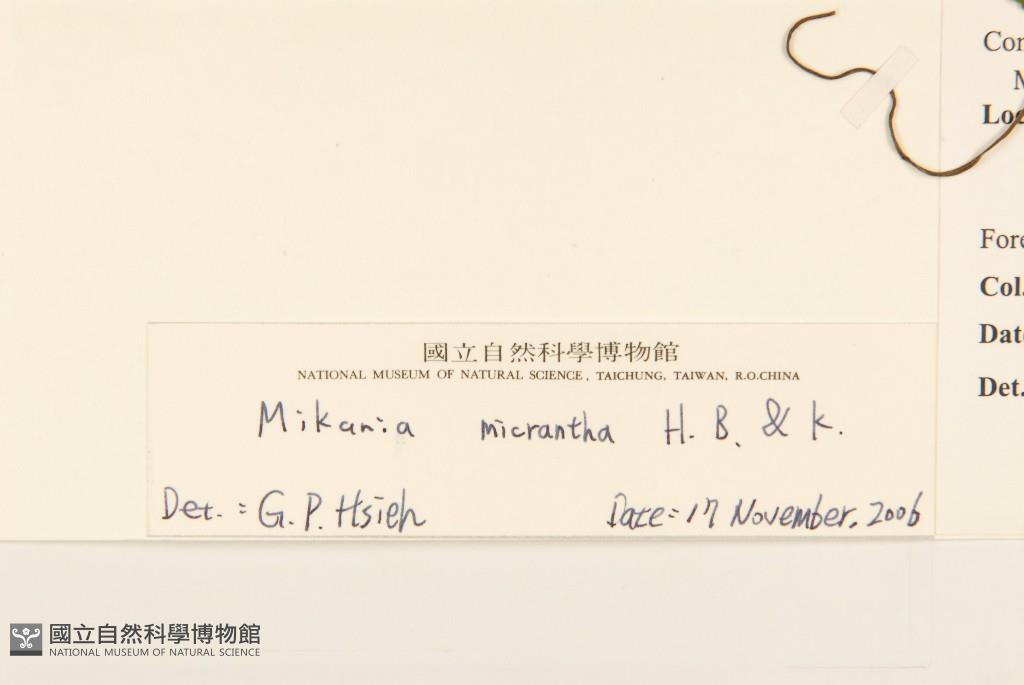 國立自然科學博物館
NATIONAL MUSEUM OF NATURAL SCIENCE, TAICHUNG, TAIWAN, R.O.CHINA
Mikania micrantha H. B. & K.
Det. : G. P. Hsieh Date : 17 November. 2006
Col.
Det.
國立自然科學博物館
NATIONAL MUSEUM OF NATURAL SCIENCE